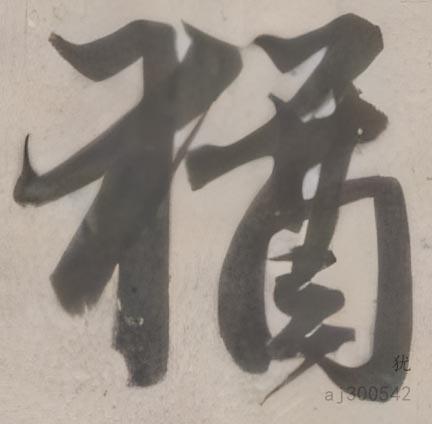 橘
犹
aj300542